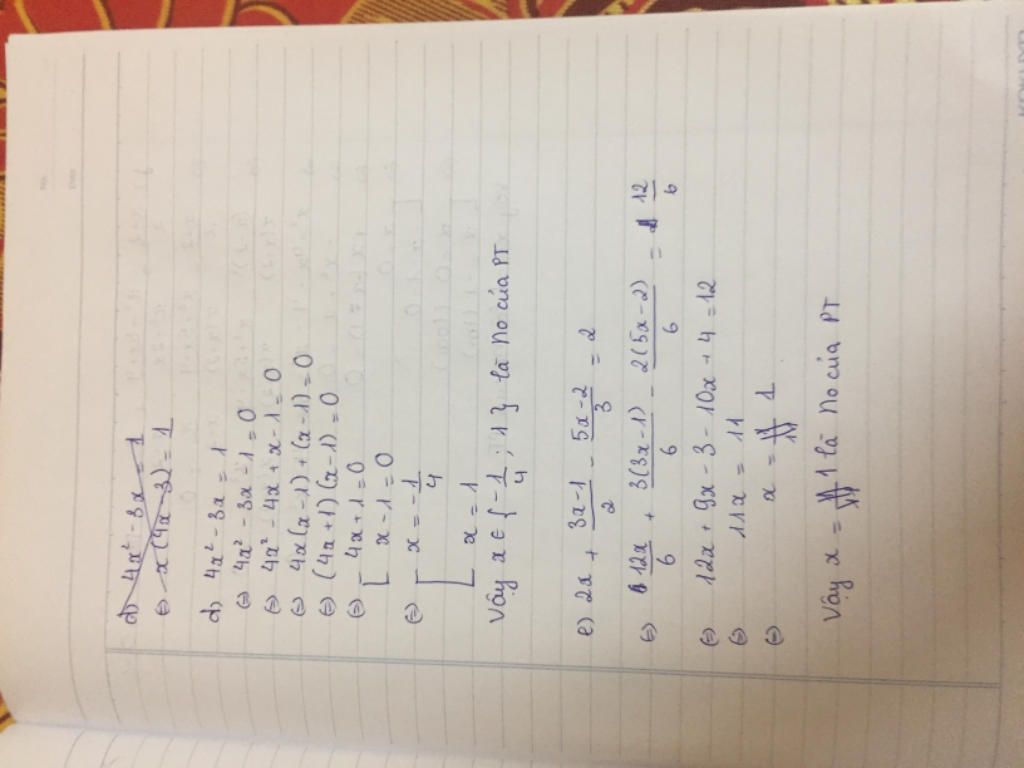 d) 4x² - 3x = 1
⇔ x(4x - 3) = 1
d) 4x² - 3x = 1
⇔ 4x² - 3x - 1 = 0
⇔ 4x² - 4x + x - 1 = 0
⇔ 4x(x - 1) + (x - 1) = 0
⇔ (4x + 1)(x - 1) = 0
⇔ [ 4x + 1 = 0
x - 1 = 0
⇔ [ x = -1/4
x = 1
Vậy x ∈ { -1/4 ; 1 } là no của PT
e) 2x + (3x - 1)/2 - (5x - 2)/3 = 2
⇔ 12x/6 + 3(3x - 1)/6 - 2(5x - 2)/6 = 12/6
⇔ 12x + 9x - 3 - 10x + 4 = 12
⇔ 11x = 11
⇔ x = 1
Vậy x = 1 là no của PT